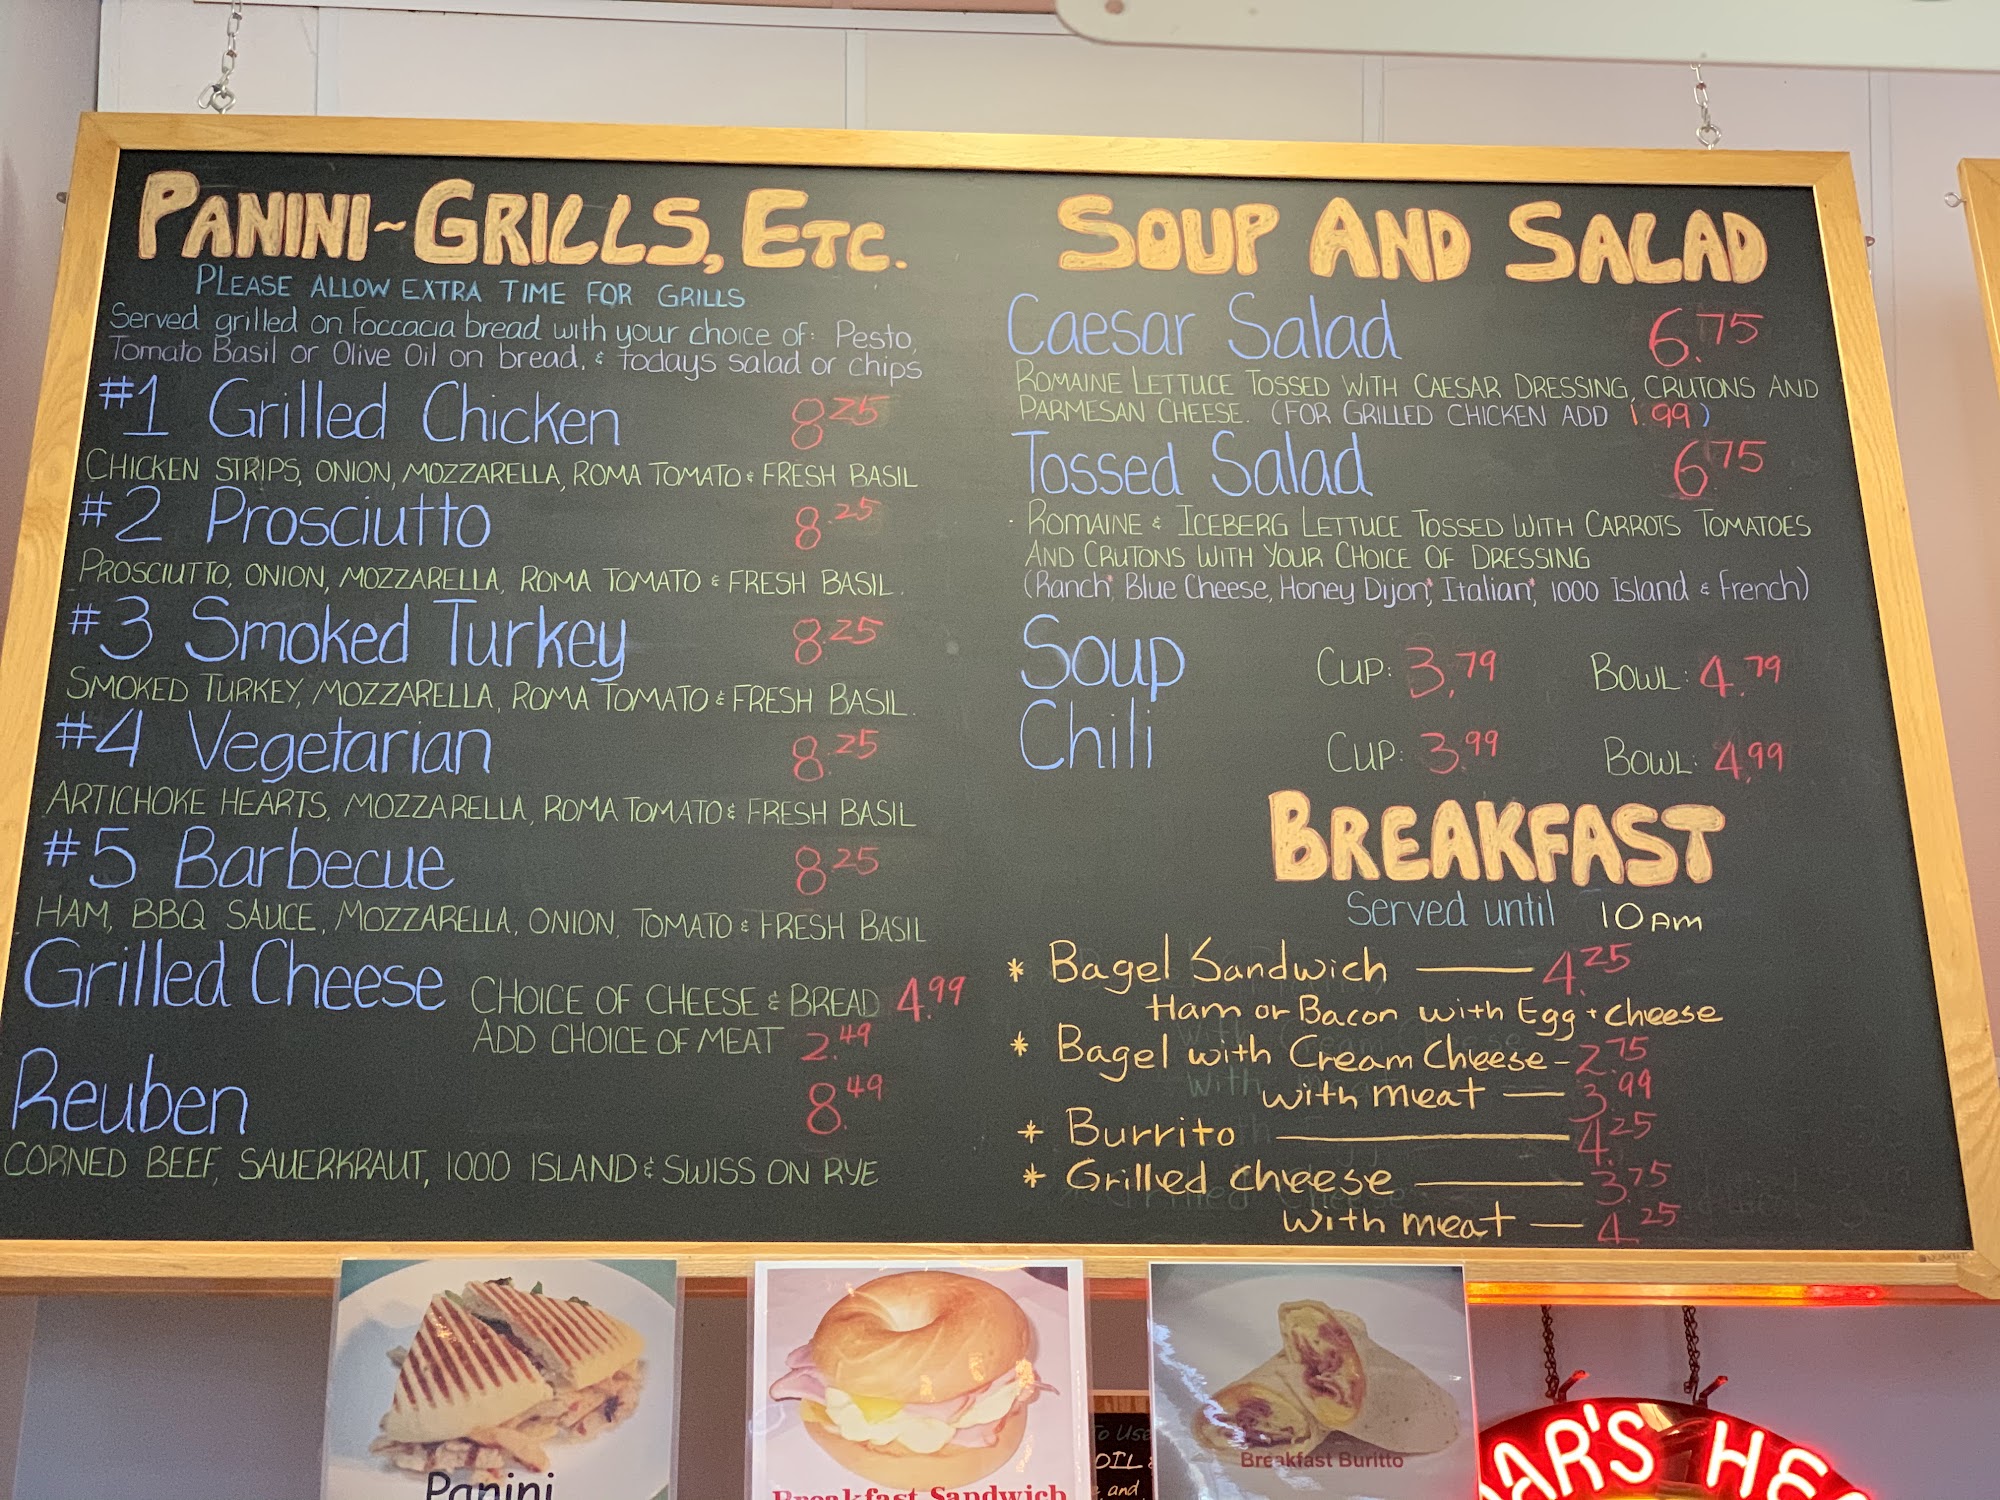 PANINI~GRILLS, ETC.
PLEASE ALLOW EXTRA TIME FOR GRILLS
Served grilled on Foccacia bread with your choice of: Pesto,
Tomato Basil or Olive Oil on bread, & todays salad or chips
#1 Grilled Chicken 8.25
CHICKEN STRIPS, ONION, MOZZARELLA, ROMA TOMATO & FRESH BASIL
#2 Prosciutto 8.25
PROSCIUTTO, ONION, MOZZARELLA, ROMA TOMATO & FRESH BASIL.
#3 Smoked Turkey 8.25
SMOKED TURKEY, MOZZARELLA, ROMA TOMATO & FRESH BASIL.
#4 Vegetarian 8.25
ARTICHOKE HEARTS, MOZZARELLA, ROMA TOMATO & FRESH BASIL
#5 Barbecue 8.25
HAM, BBQ SAUCE, MOZZARELLA, ONION, TOMATO & FRESH BASIL
Grilled Cheese CHOICE OF CHEESE & BREAD 4.99
ADD CHOICE OF MEAT 2.49
Reuben 8.49
CORNED BEEF, SAUERKRAUT, 1000 ISLAND & SWISS ON RYE
SOUP AND SALAD
Caesar Salad 6.75
ROMAINE LETTUCE TOSSED WITH CAESAR DRESSING, CRUTONS AND
PARMESAN CHEESE. (FOR GRILLED CHICKEN ADD 1.99)
Tossed Salad 6.75
ROMAINE & ICEBERG LETTUCE TOSSED WITH CARROTS TOMATOES
AND CRUTONS WITH YOUR CHOICE OF DRESSING
(Ranch*, Blue Cheese, Honey Dijon*, Italian*, 1000 Island & French)
Soup CUP: 3.79 BOWL: 4.79
Chili CUP: 3.99 BOWL: 4.99
BREAKFAST
Served until 10 AM
* Bagel Sandwich — 4.25
Ham or Bacon with Egg + cheese
* Bagel with Cream Cheese - 2.75
with meat — 3.99
* Burrito — 4.25
* Grilled cheese — 3.75
with meat — 4.25
Panini
Breakfast Sandwich
Breakfast Buritto
To Use
OIL &
and
AR'S HE